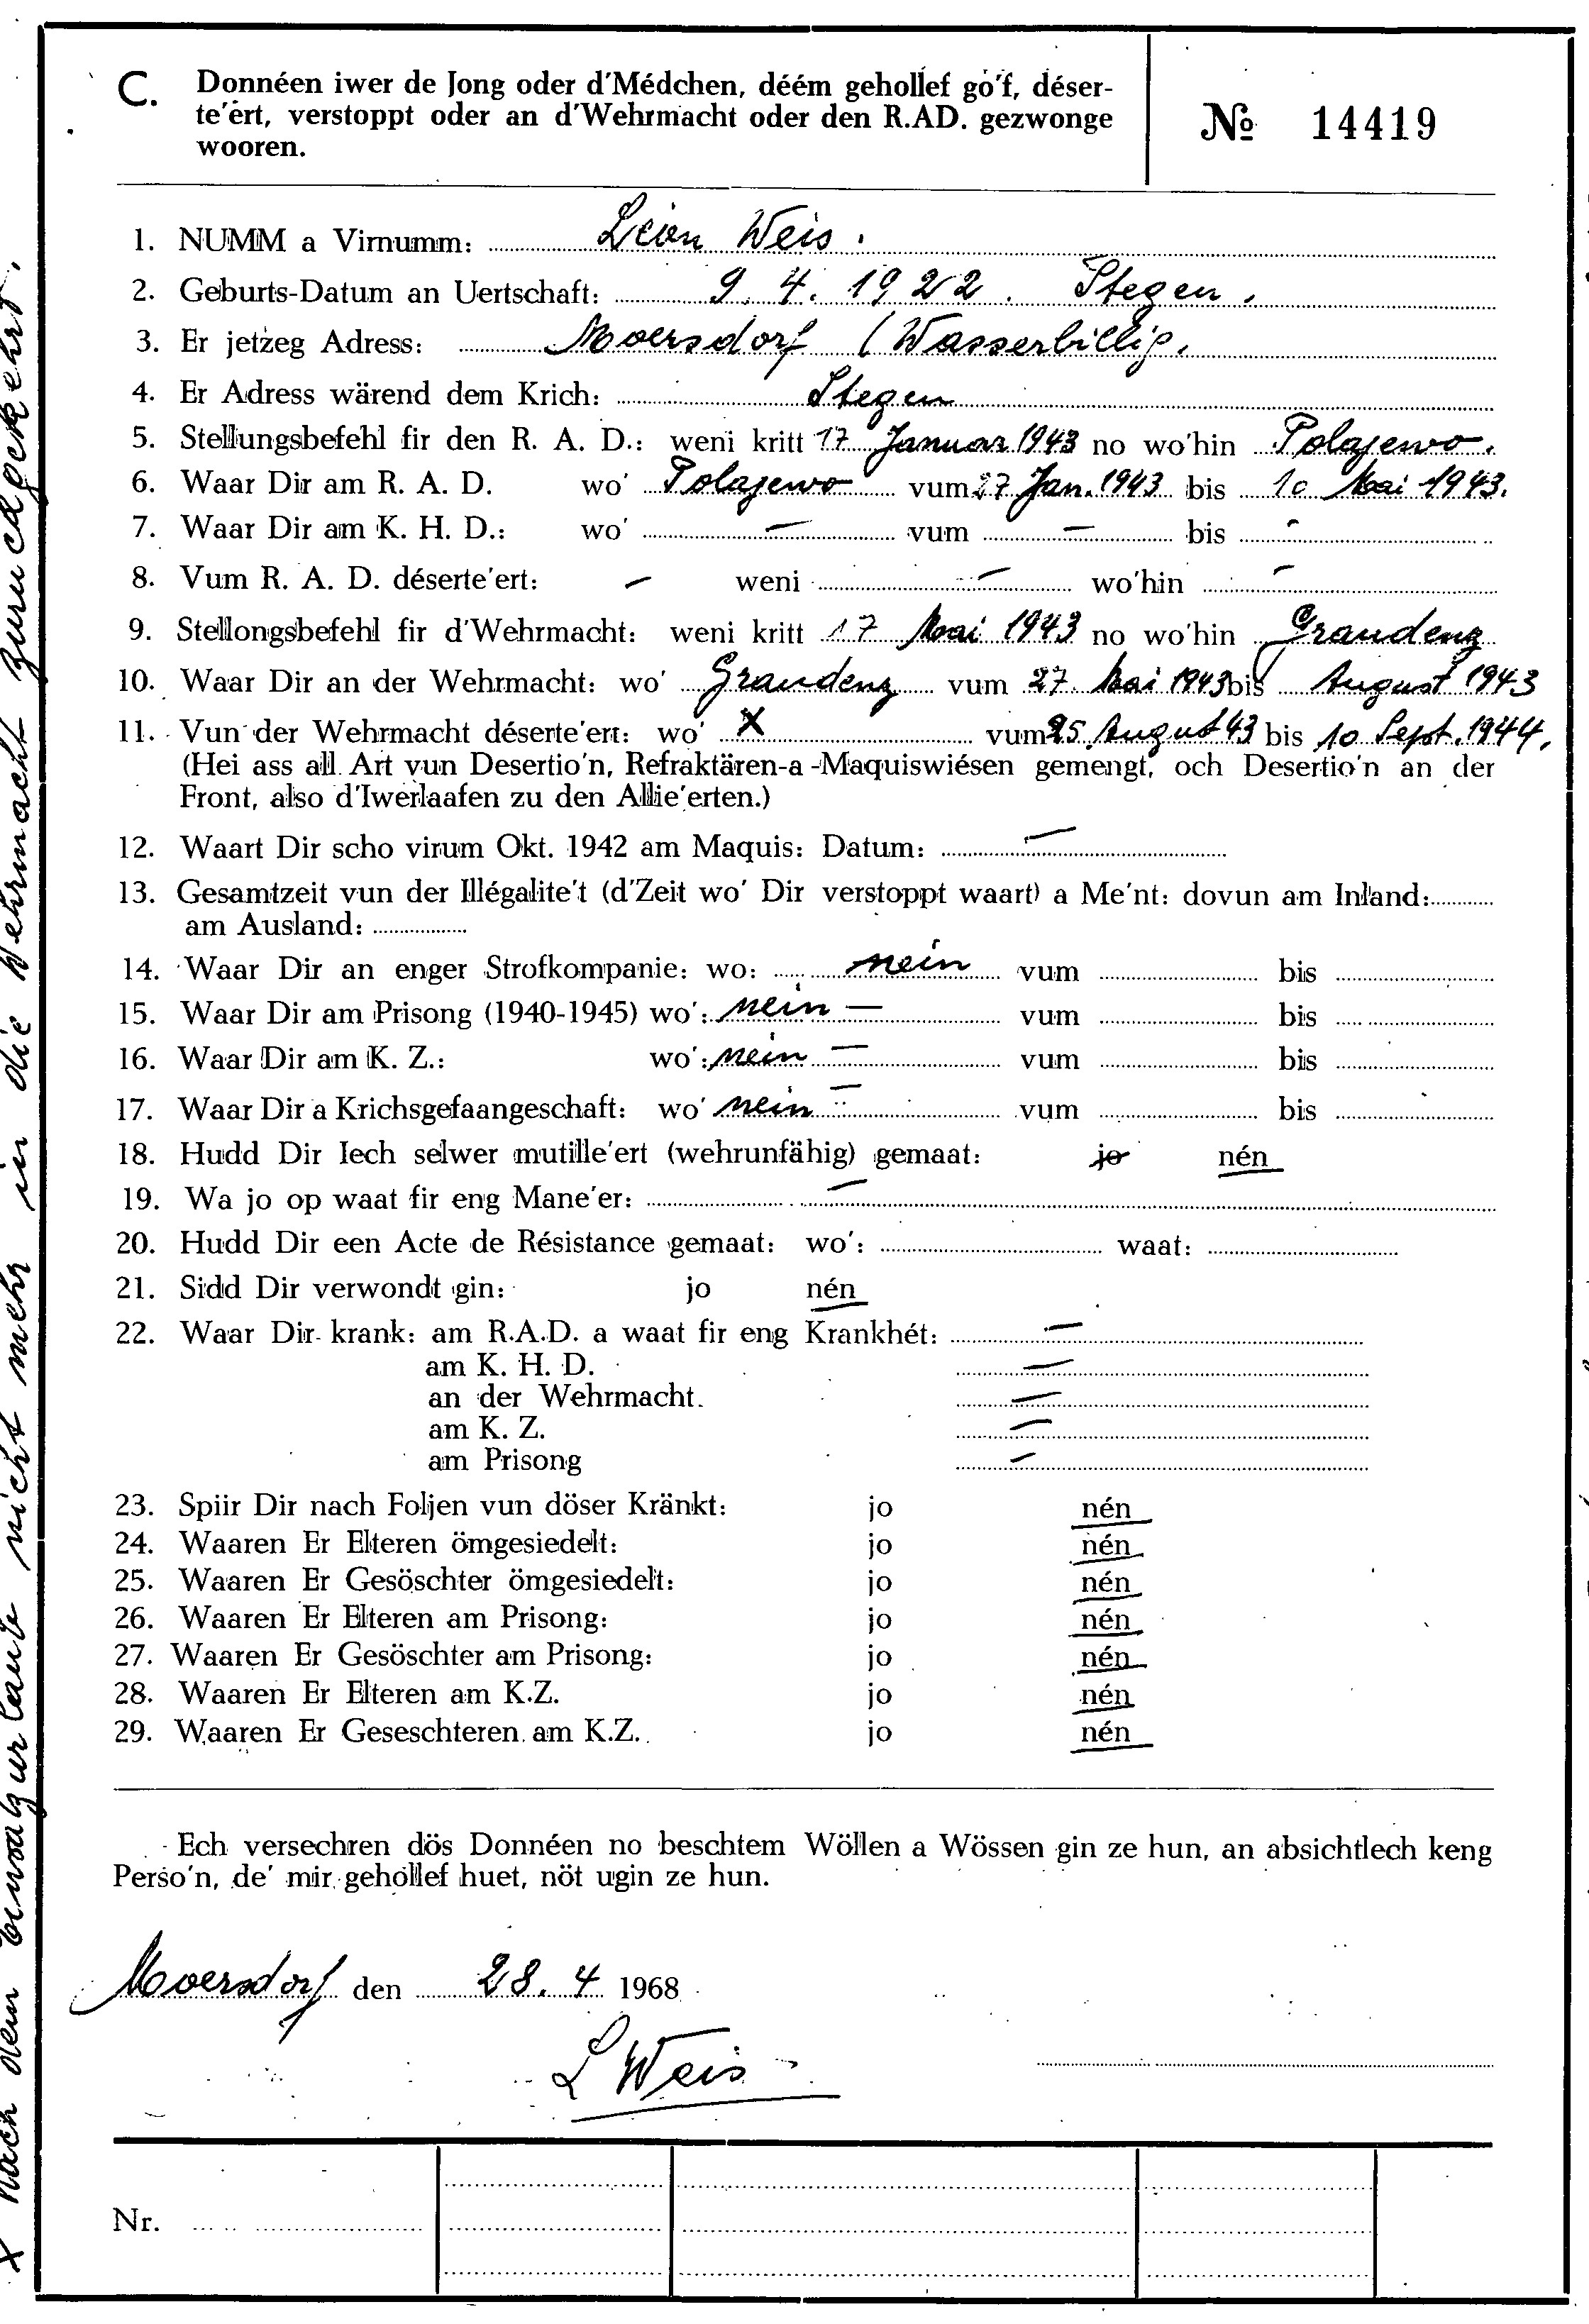 C. Donnéen iwer de Jong oder d'Médchen, déém gehollef go'f, déser-
te'ert, verstoppt oder an d'Wehrmacht oder den R.AD. gezwonge
wooren.
№ 14419
1. NUMM a Virnumm: Léon Weis.
2. Geburts-Datum an Uertschaft: 9. 4. 1922. Stegen.
3. Er jetzeg Adress: Moersdorf (Wasserbillig.
4. Er Adress wärend dem Krich: Stegen
5. Stellungsbefehl fir den R. A. D.: weni kritt 17 Januar 1943 no wo'hin Polajewo.
6. Waar Dir am R. A. D. wo' Polajewo vum 27 Jan. 1943 bis 10 Mai 1943.
7. Waar Dir am K. H. D.: wo' — vum — bis -
8. Vum R. A. D. déserte'ert: — weni — wo'hin -
9. Stellongsbefehl fir d'Wehrmacht: weni kritt 17 Mai 1943 no wo'hin Graudenz
10. Waar Dir an der Wehrmacht: wo' Graudenz vum 27. Mai 1943 bis August 1943
11. Vun der Wehrmacht déserte'ert: wo' X vum 25 August 43 bis 10 Sept. 1944.
(Hei ass all Art vun Desertio'n, Refraktären-a-Maquiswiésen gemengt, och Desertio'n an der
Front, also d'Iwerlaafen zu den Allie'erten.)
12. Waart Dir scho virum Okt. 1942 am Maquis: Datum: —
13. Gesamtzeit vun der Illégalite't (d'Zeit wo' Dir verstoppt waart) a Me'nt: dovun am Inland:
am Ausland:
14. Waar Dir an enger Strofkompanie: wo: nein vum bis
15. Waar Dir am Prisong (1940-1945) wo': nein — vum bis
16. Waar Dir am K. Z.: wo': nein — vum bis
17. Waar Dir a Krichsgefaangeschaft: wo' nein — vum bis
18. Hudd Dir Iech selwer mutille'ert (wehrunfähig) gemaat: jo nén
19. Wa jo op waat fir eng Mane'er: —
20. Hudd Dir een Acte de Résistance gemaat: wo': waat:
21. Sidd Dir verwondt gin: jo nén
22. Waar Dir krank: am R.A.D. a waat fir eng Krankhét: —
am K. H. D. —
an der Wehrmacht. —
am K. Z. —
am Prisong —
23. Spiir Dir nach Foljen vun döser Kränkt: jo nén
24. Waaren Er Elteren ömgesiedelt: jo nén
25. Waaren Er Gesöschter ömgesiedelt: jo nén
26. Waaren Er Elteren am Prisong: jo nén
27. Waaren Er Gesöschter am Prisong: jo nén
28. Waaren Er Elteren am K.Z. jo nén
29. Waaren Er Geseschteren am K.Z. jo nén
Ech versechren dös Donnéen no beschtem Wöllen a Wössen gin ze hun, an absichtlech keng
Perso'n, de' mir gehollef huet, nöt ugin ze hun.
Moersdorf den 28. 4 1968
L Weis
Nr.
X nach dem Einsatzurlaub nicht mehr in die Wehrmacht zurückgekehrt.